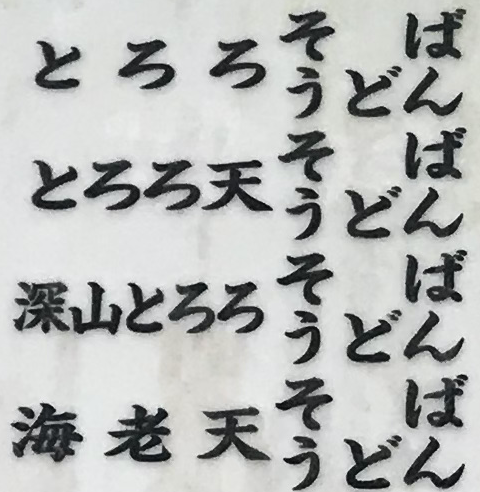 とろろ そば
うどん
とろろ天 そば
うどん
深山とろろ そば
うどん
海老天 そば
うどん